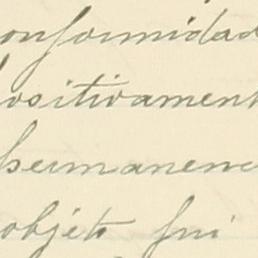 onformidad
positivament
permanenc
objeto fui